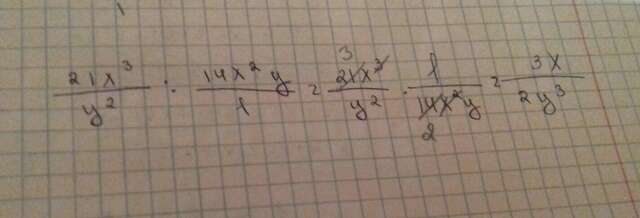 21x³/y² : 14x²y/1 = 21x³/y² · 1/14x²y = 3x/2y³
3
2